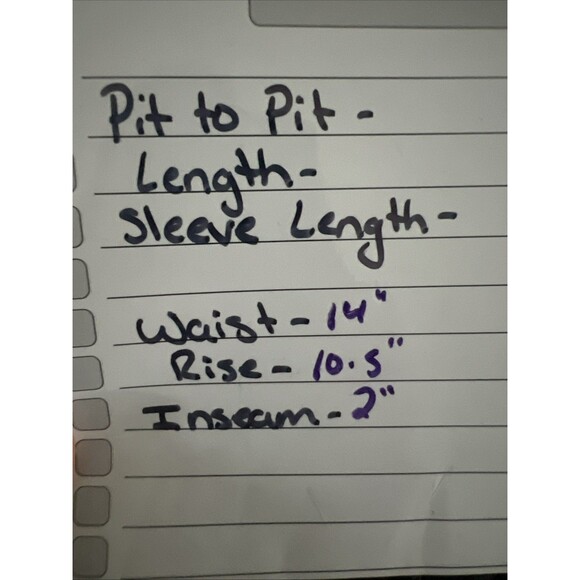 Pit to Pit -
Length-
Sleeve Length-
Waist - 14"
Rise - 10.5"
Inseam - 2"